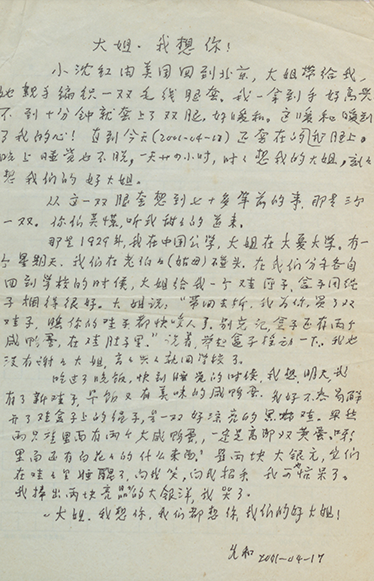 大姐．我想你！
小沈红由美国回到北京，大姐带给我，
她亲手编织一双毛线腿套。我一拿到手好高兴
不到十分钟就套上了双腿，好暖和。这暖和暖到
了我的心！直到今天(2001-04-18)还套在的我腿上。
晚上睡觉也不脱，一天廿四小时，时时想我的大姐，刻刻
想我们的好大姐。
从这一双腿套想到七十多年前的事，那是另
一双。你们莫慌，听我慢慢的道来。
那是1929年，我在中国公学，大姐在大夏大学。有
一个星期天，我们在老伯伯(姑母)碰头。在我们分手各自
回到学校的时候，大姐给我一个鞋匣子，盒子用绳
子捆得很好。大姐说，“带回去吧，我为你买了双
鞋子，瞧你的鞋子都快咬人了。别忘记，盒子还有两个
咸鸭蛋，在鞋肚子里。”说着，举起盒子摇动一下。我也
没有谢谢大姐，高高兴兴就回学校了。
吃过了晚饭，快到睡觉的时候，我想，明天，我
有了新鞋子，早饭又有美味的咸鸭蛋。我好不容易解
开了鞋盒子上的绳子，是一双好漂亮的黑皮鞋。果然
两只鞋里面有两个大咸鸭蛋，一定是高邮双黄蛋。呀！
里面还有白花花的什么东西？是两块大银元，它们
在鞋子里睡醒了，向我笑，向我招手，我可惊呆了。
我捧出两块亮晶晶的大银洋，我哭了。
大姐．我想你，我们都想你，我们的好大姐！
2001-04-17